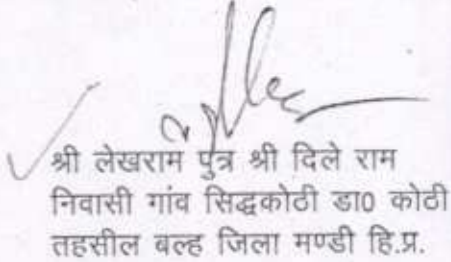 श्री लेखराम पुत्र श्री दिले राम
निवासी गांव सिद्धकोठी डा0 कोठी
तहसील बल्ह जिला मण्डी हि.प्र.